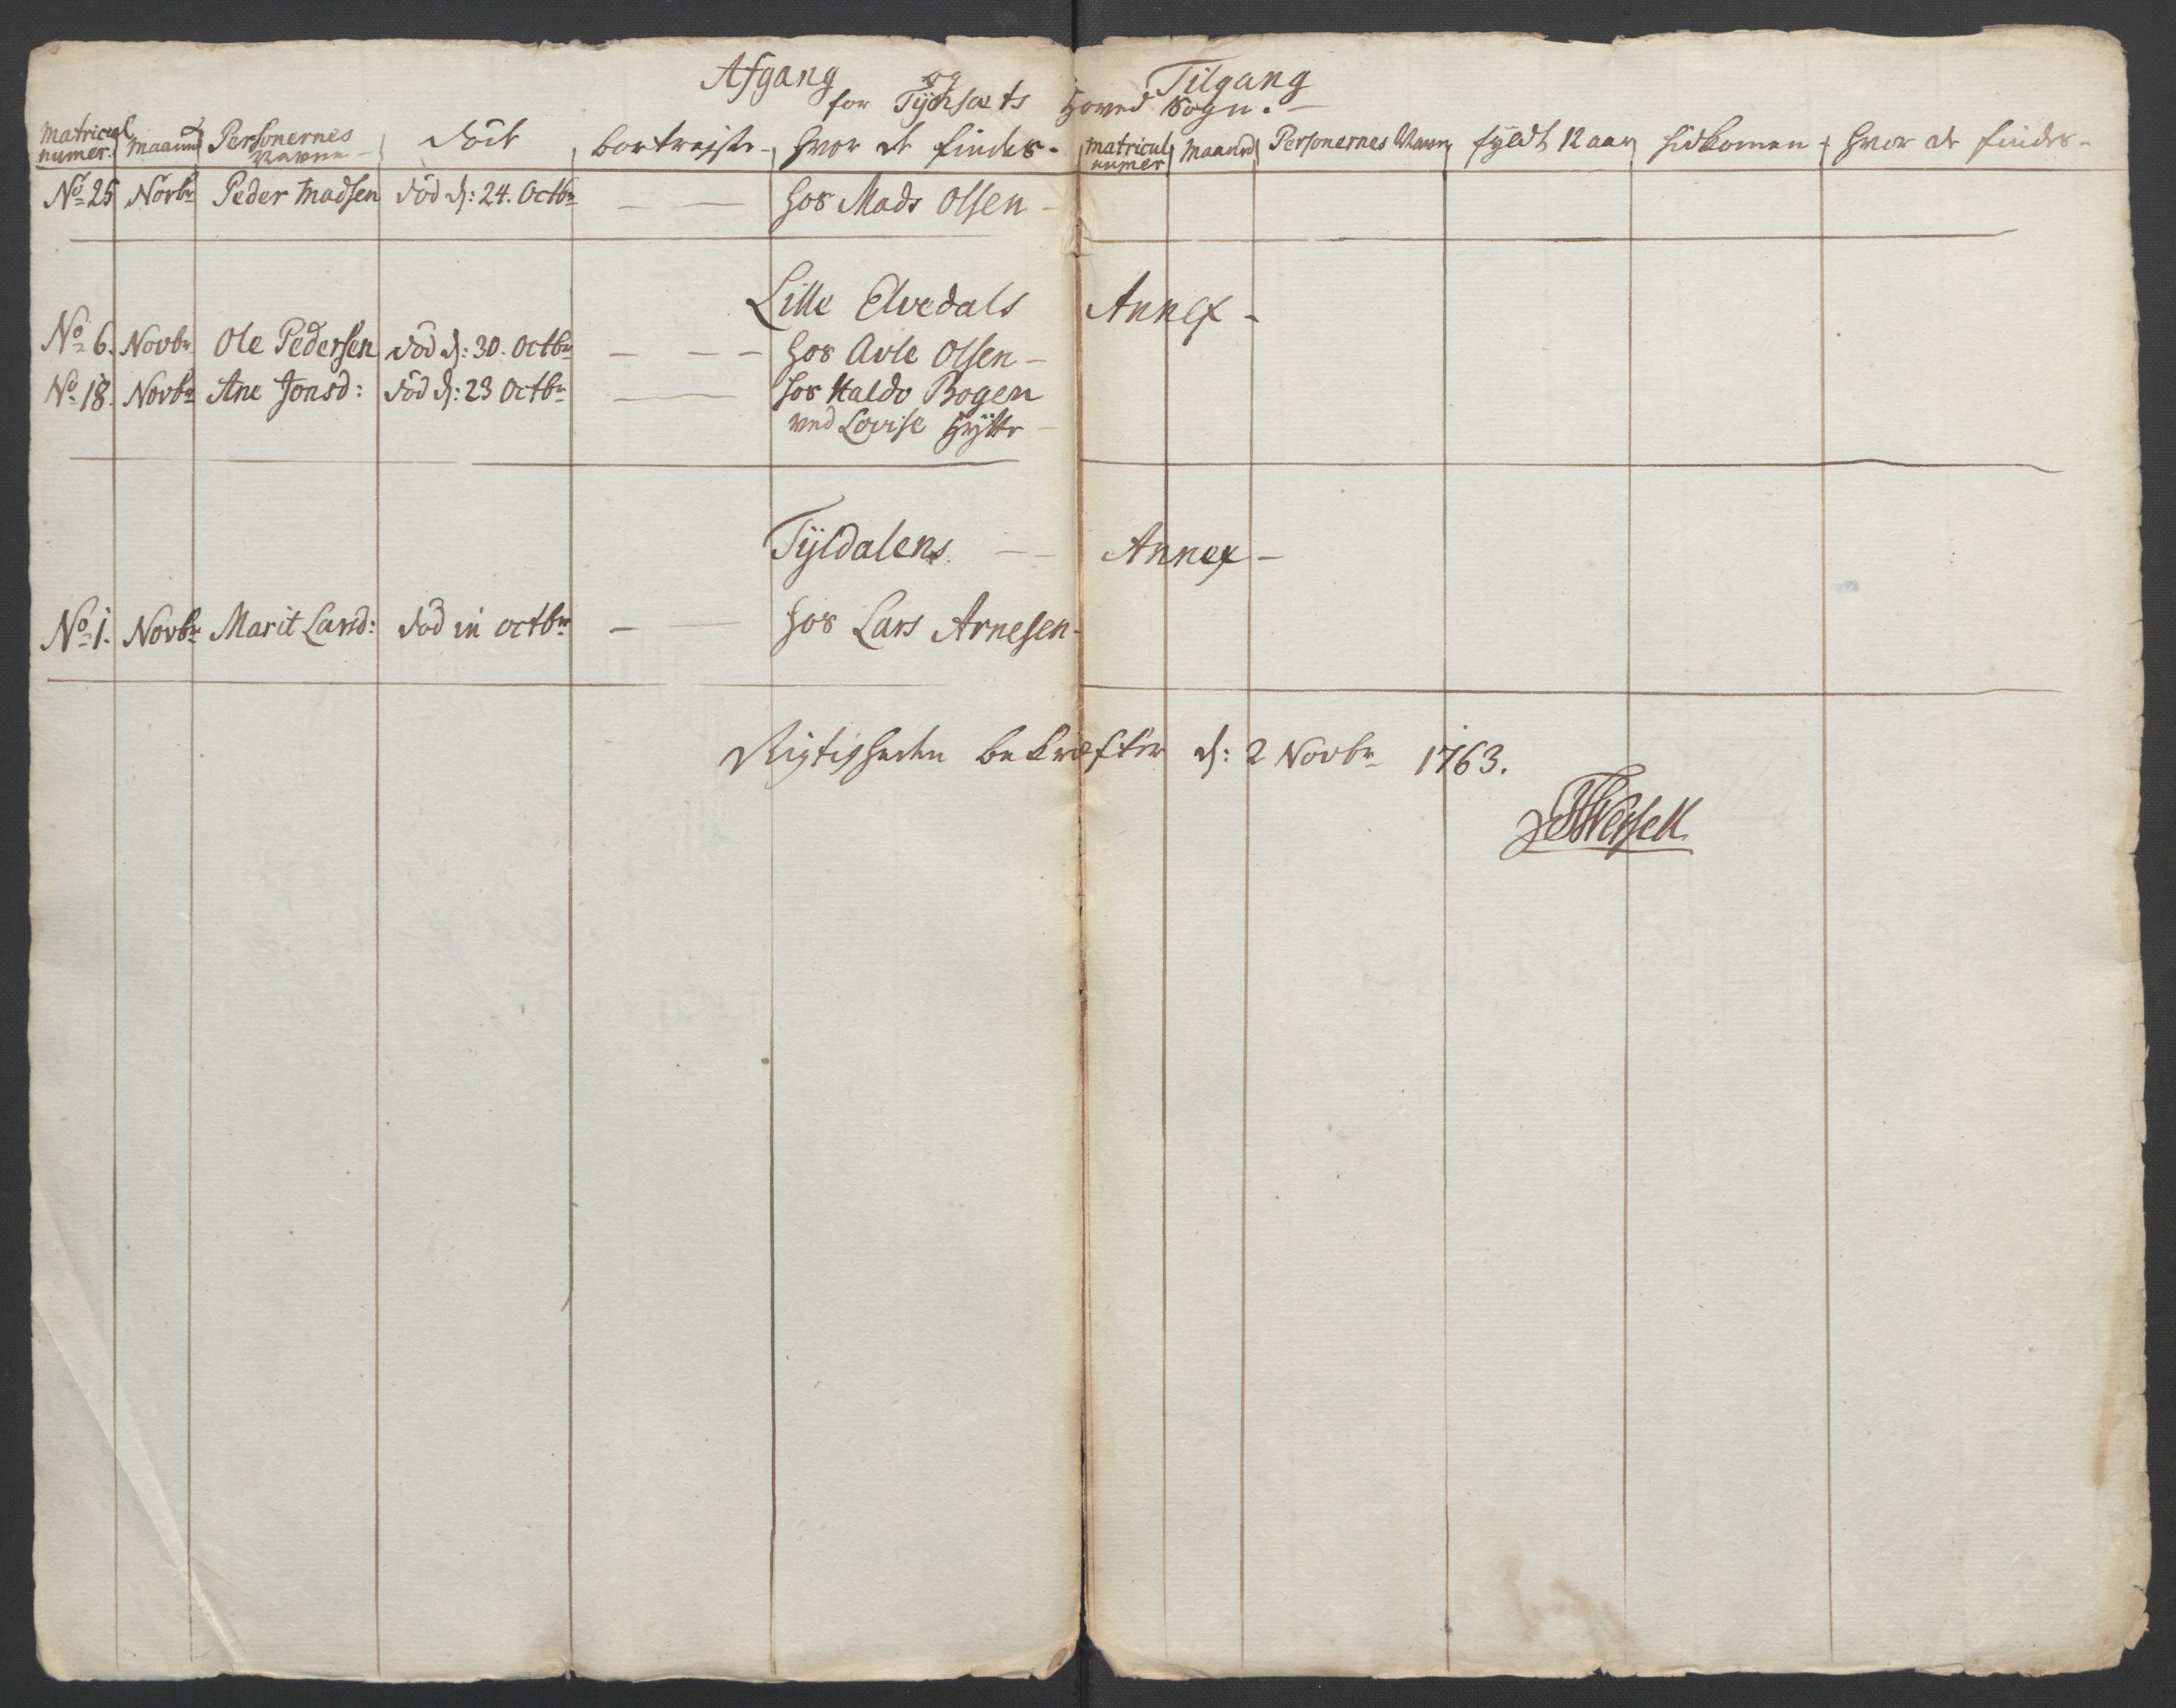 Afgang og Tilgang
for Tÿnsæts Hoved Sogn.
Matricul numer. Maaned Personernes Navne Død bortrejste hvor de findes. Matricul numer Maaned Personernes Navne fyldt 12 aar hidkomen hvor de findes
No 25 Novbr Peder Madsen død d: 24. Octbr — — hos Mads Olsen
Lille Elvedals Annex
No 6. Novbr Ole Pedersen død d: 30. Octbr — — — hos Avle Olsen
No 18. Novbr Ane Jonsd: død d: 23 Octbr — — hos Haldo Bogen
ved Lovise Hÿtte
Tÿldalens Annex
No 1. Novbr Marit Larsd: død in octbr — — hos Lars Arnesen
Rigtigheden bekræfter d: 2 Novbr 1763.